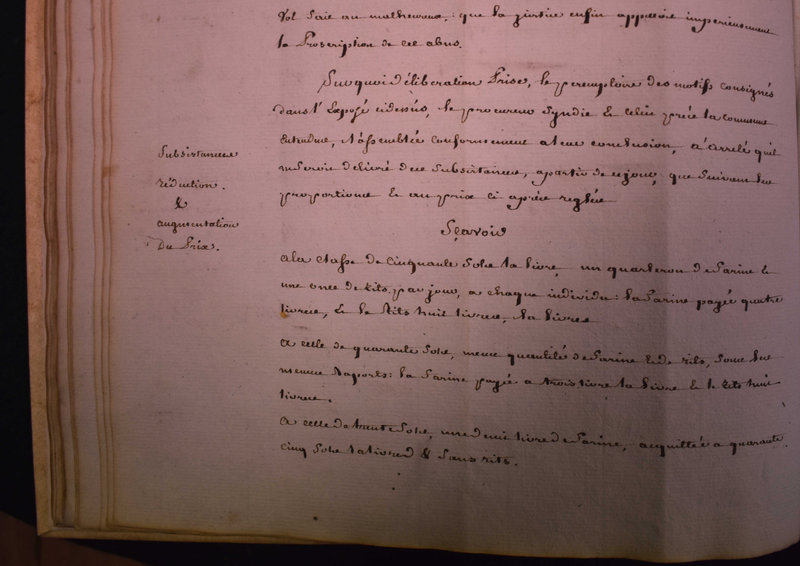 Vol fait au malheureux, : que la justice enfin appelloit imperieusement
la Proscription de cet abus.
Sur quoi déliberation Prise, le peremptoire des motifs consignés
dans l'Exposé cidessus, le procureur Syndic de celui près la commune
entendue, l'assemblée conformement a leur conclusion, a arrêlé qu'il
ne seroit délivré des Subsistances, apartir de ce jour, que suivant les
proportions & au prix ci après réglés
Sçavoir
Subsistances
réduction.
&
augmentation
Du Prix.
a la classe de Cinquante Sols la livre, un quarteron de farine &
une once de Rits, par jour, a chaque individu : la farine payée quatre
livres, & le Rits huit livres, la livre
a celle de quarante Sols, meme quantité de farine & de rits, sous les
mêmes Raports : la farine payée a trois livre la livre & le Rits huit
livres.
a celle de trente Sols, une demi livre de farine, acquittée a quarante
cinq Sols la livre & sans rits.